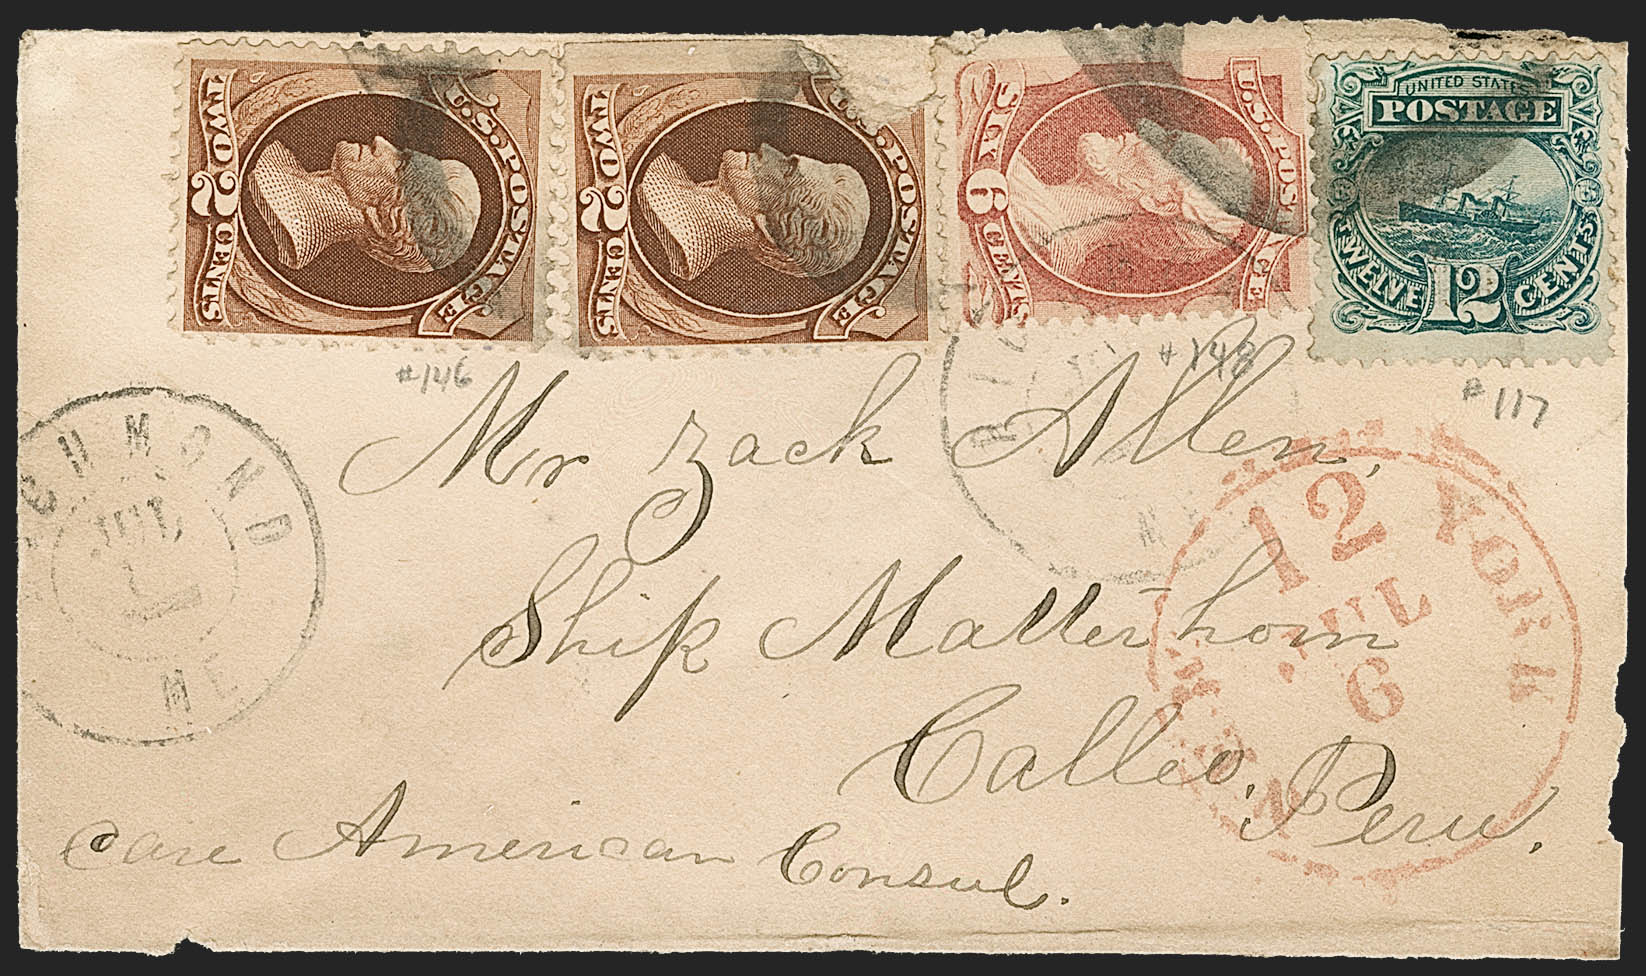 U.S. POSTAGE
TWO 2 CENTS
U.S. POSTAGE
TWO 2 CENTS
U.S. POSTAGE
SIX 6 CENTS
UNITED STATES
POSTAGE
TWELVE 12 CENTS
#146
#148
#117
Mr Zack Allen,
Ship Matterhorn
Calleo, Peru.
care American Consul.
RICHMOND
JUL
1
ME
NEW YORK
12
JUL
6